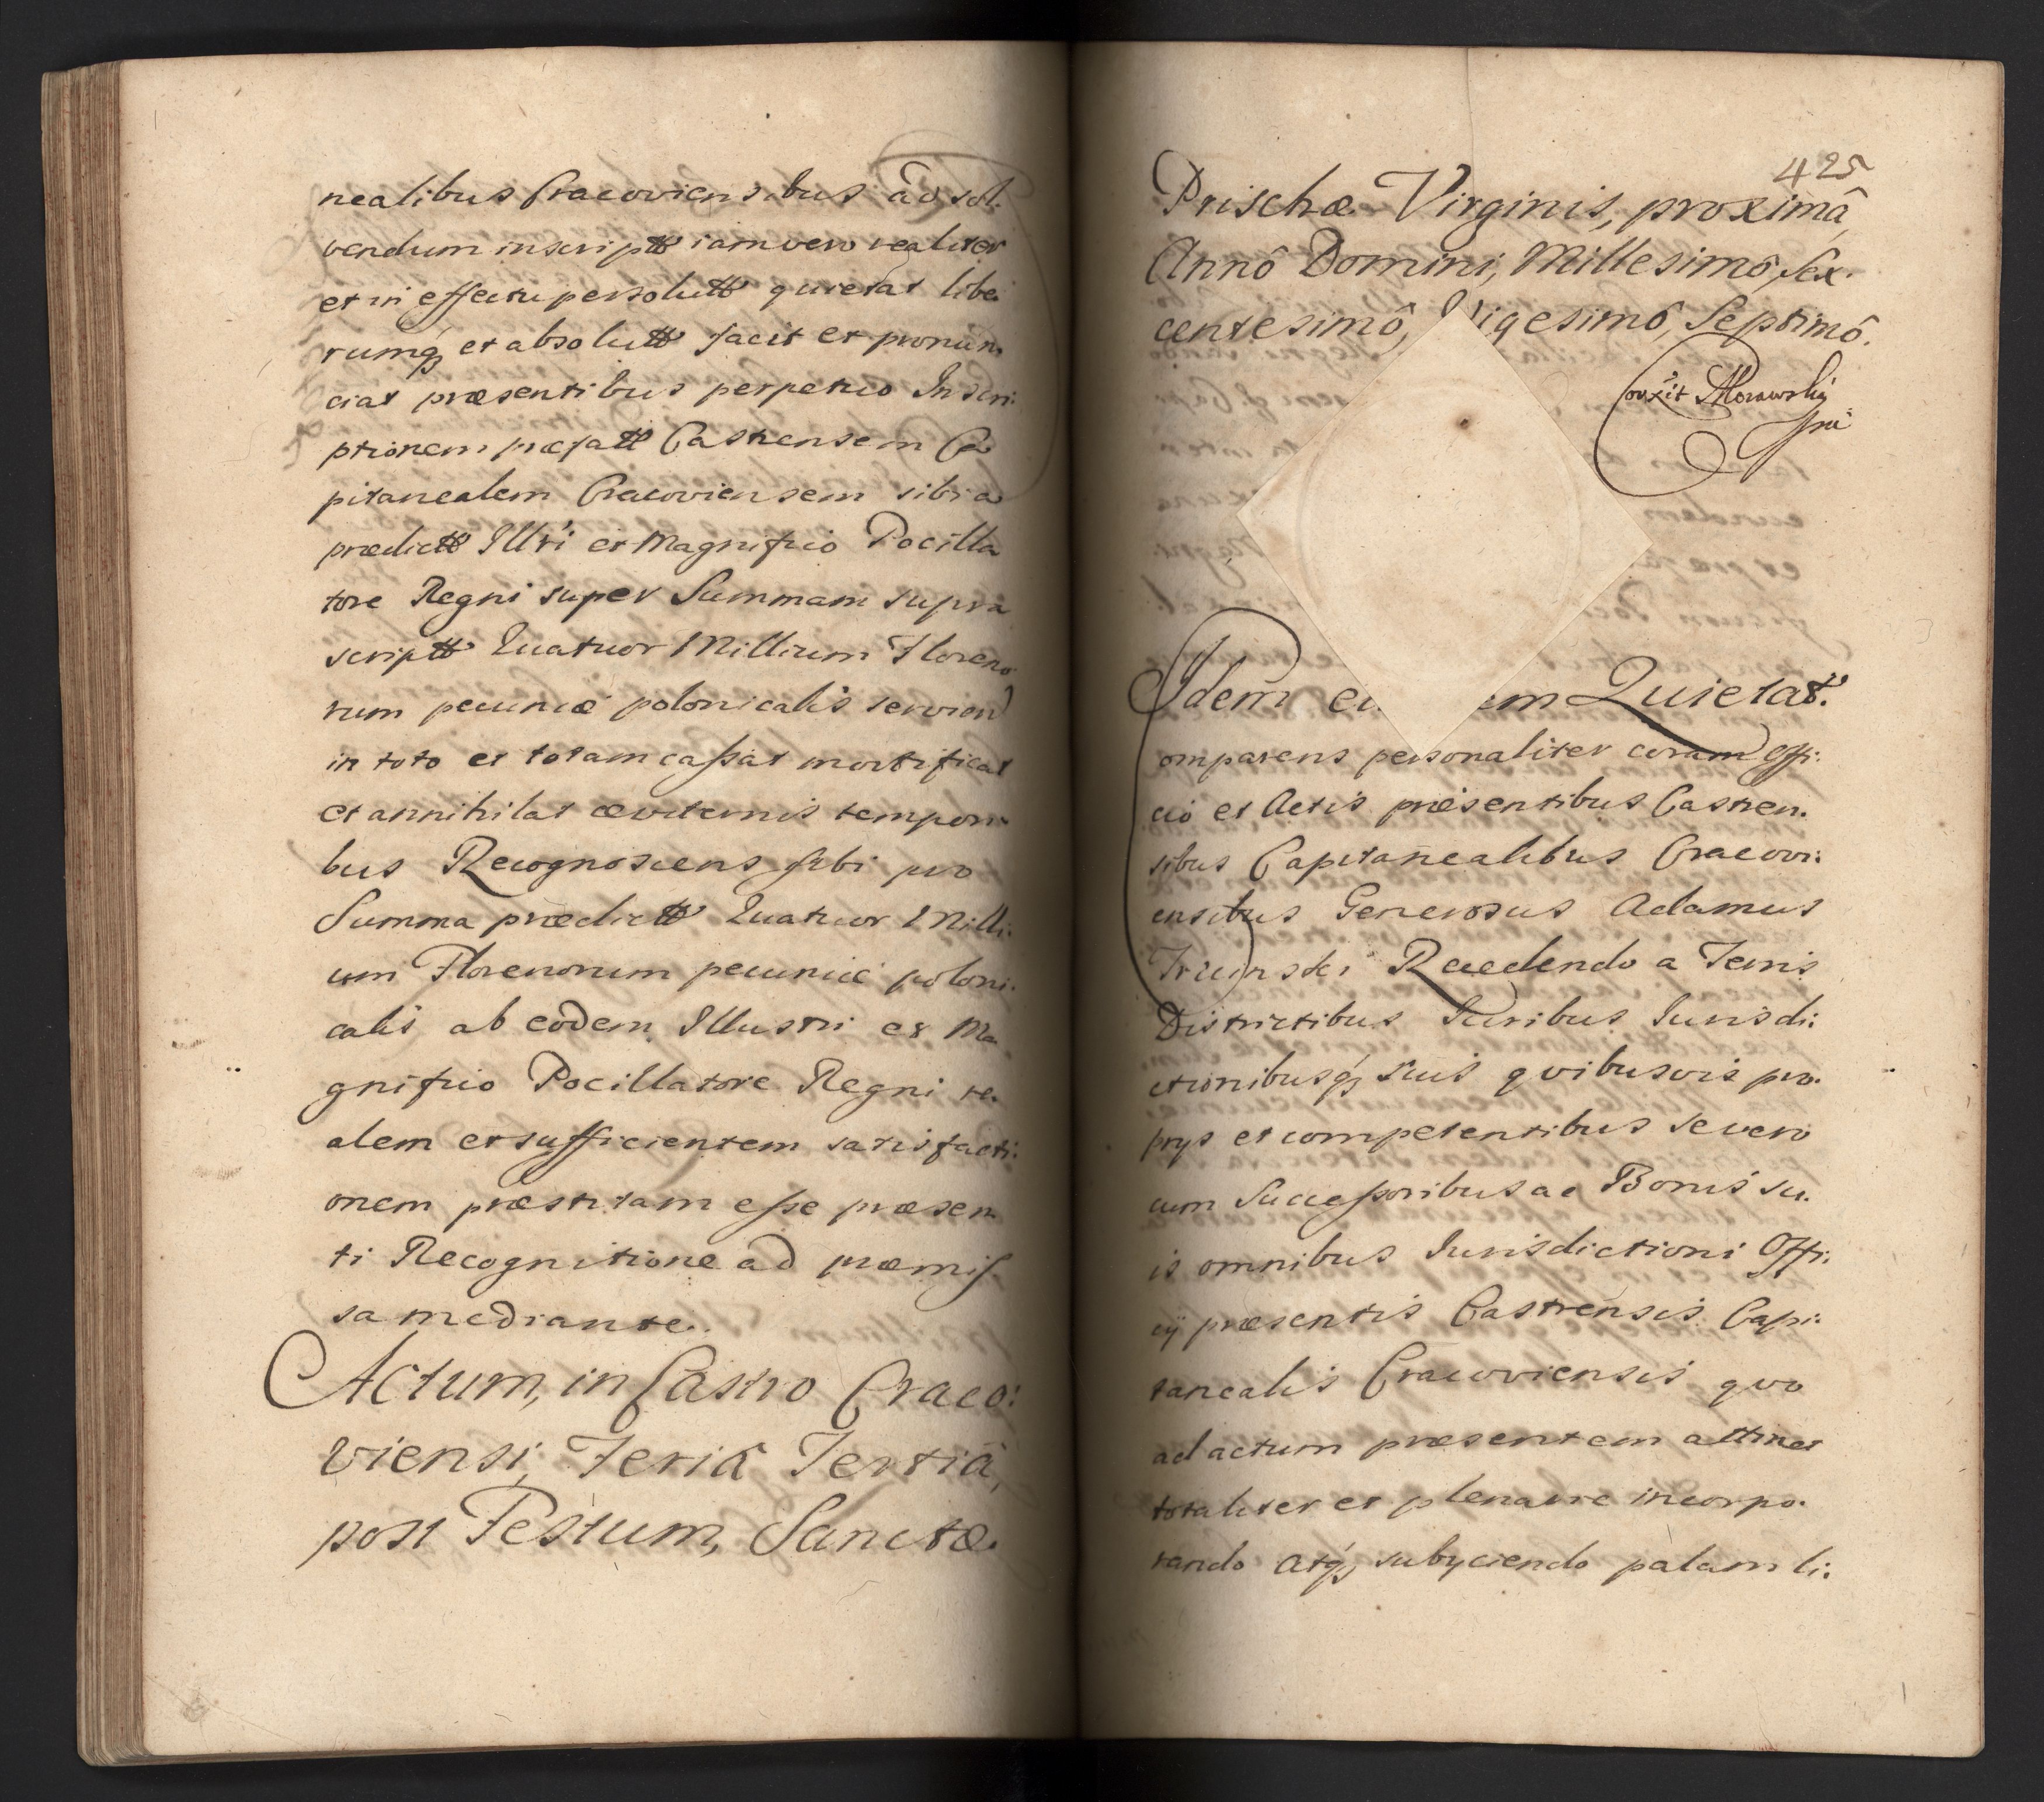 nealibus Cracoviensibus ad sol.
vendum inscriptt iam vero realiter
et in effectu persolutt quietat libe
rumq et absolutt facit et pronun
ciat præsentibus perpetuo Inscri.
ptionem præfatt Castrensem Ca
pitanealem Cracoviensem sibi a
prædictt Illri et Magnifico Pocilla
tore Regni super Summam supra
scriptt Quatuor Millium Floreno
rum pecuniæ polonicalis serviend
in toto et totam cassat mortificat
et annihilat æviternis tempori
bus Recognoscens sibi pro
Summa prædictt Quatuor Milli.
um Florenorum pecuniæ poloni.
calis ab eodem Illustri et Ma
gnifico Pocillatore Regni re.
alem et sufficientem satisfacti.
onem præstitam esse præsen
ti Recognitione ad præmis
sa mediante.
Actum, in Castro Craco:
viensi, Feriâ Tertiâ,
post Festum, Sanctæ.
425
Prischæ Virginis, proximâ,
Annô Domini, Millesimô, Sex.
centesimô, Vigesimô, Septimô.
Corrxit Morawski
Idem em Quietat.
omparens personaliter coram Offi:
cio et Actis præsentibus Castren.
sibus Capitanealibus Cracovi:
ensibus Generosus Adamus
Recedendo a Terris
Districtibus Iuribus Iurisdi:
ctionibusq suis qvibusvis pro.
prys et competentibus se vero
cum Successoribus ac Bonis su.
is omnibus Iurisdictioni Offi:
cÿ præsentis Castrensis Capi:
tanealis Cracoviensis quo
ad actum præsentem attinet
totaliter et plenarie incorpo.
rando atq subyciendo palam li: